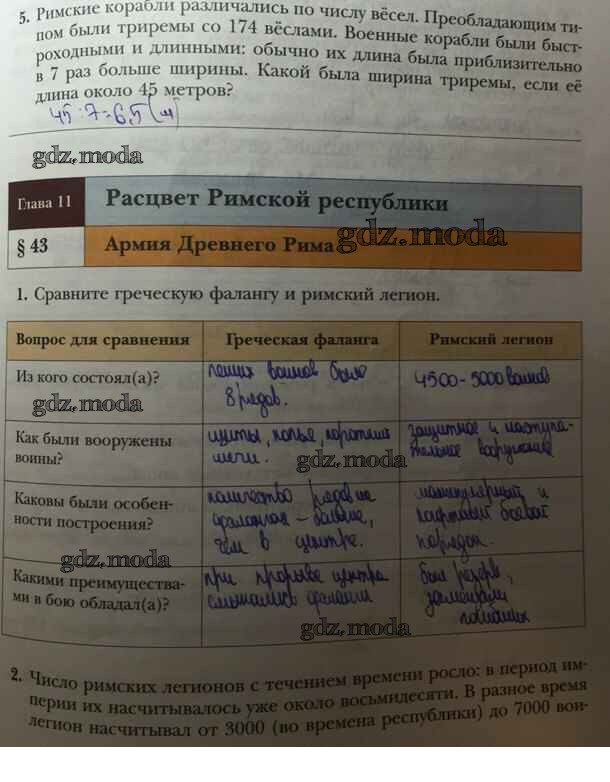 5. Римские корабли различались по числу вёсел. Преобладающим ти-
пом были триремы со 174 вёслами. Военные корабли были быст-
роходными и длинными: обычно их длина была приблизительно
в 7 раз больше ширины. Какой была ширина триремы, если её
длина около 45 метров?
45:7=6,5(м)
gdz.moda
Глава 11
Расцвет Римской республики
§ 43
Армия Древнего Рима
gdz.moda
1. Сравните греческую фалангу и римский легион.
Вопрос для сравнения
Греческая фаланга
Римский легион
Из кого состоял(а)?
пеших воинов было
8 рядов.
4500-5000 воинов
gdz.moda
Как были вооружены
воины?
щиты, копье, короткие
мечи.
защитное и наступа-
тельное вооружение
gdz.moda
Каковы были особен-
ности построения?
количество рядов на
флангах - больше,
чем в центре.
манипулярный и
когортный боевой
порядок.
gdz.moda
Какими преимущества-
ми в бою обладал(а)?
при прорыве центра
смыкались фланги
был резерв,
заменяли
погибших
gdz.moda
2. Число римских легионов с течением времени росло: в период им-
перии их насчитывалось уже около восьмидесяти. В разное время
легион насчитывал от 3000 (во времена республики) до 7000 вои-